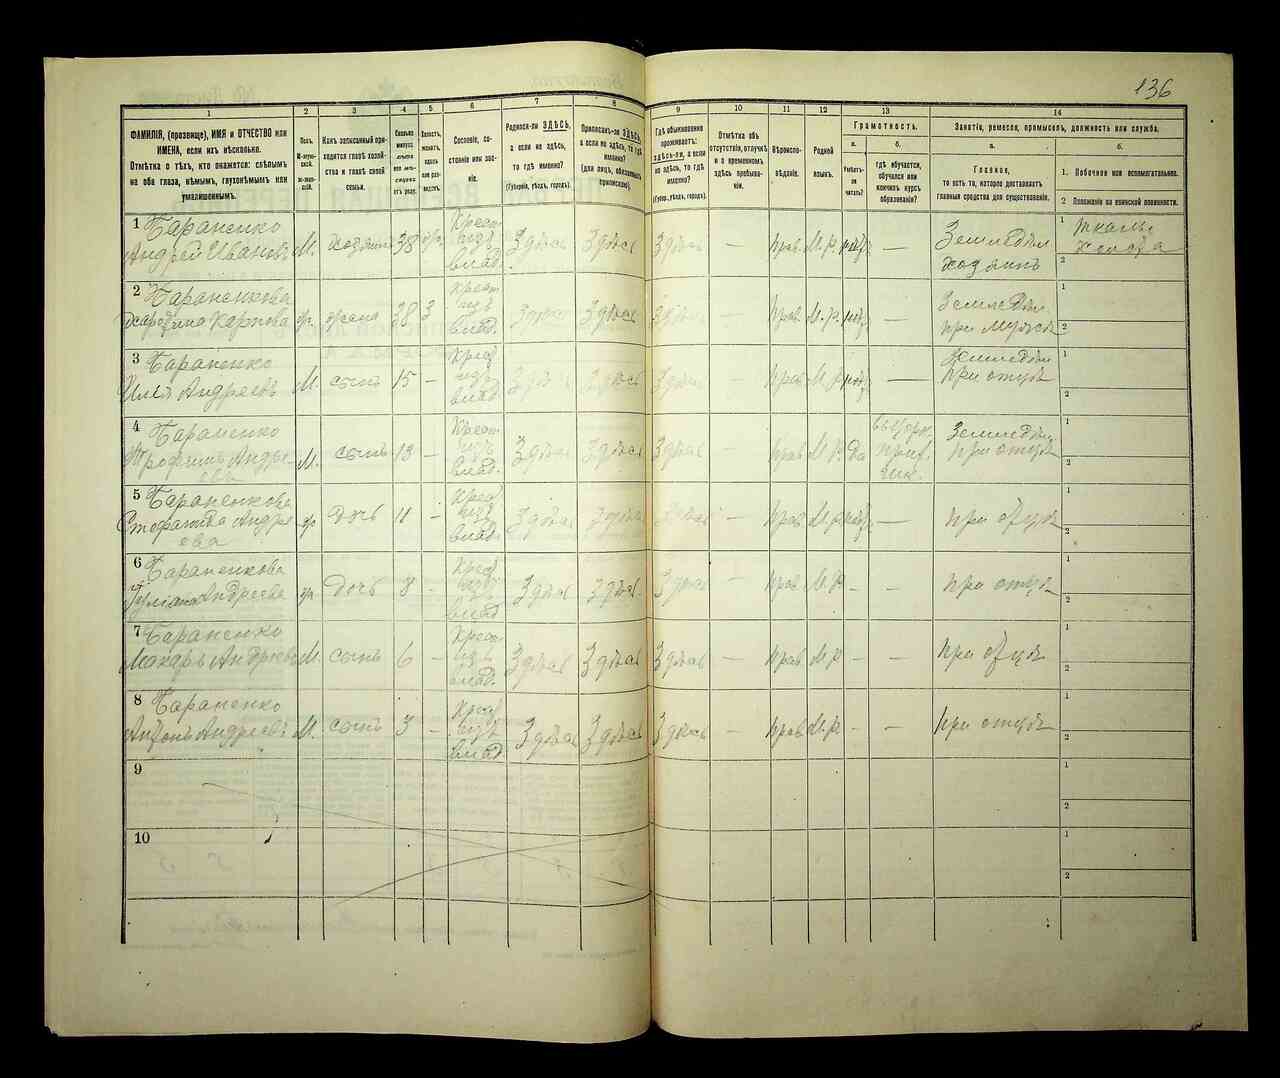 136
1
2
3
4
5
6
7
8
9
10
11
12
13
14
ФАМИЛІЯ, (прозвище), ИМЯ и ОТЧЕСТВО или
ИМЕНА, если ихъ нѣсколько.
Отмѣтка о тѣхъ, кто окажется: слѣпымъ
на оба глаза, нѣмымъ, глухонѣмымъ или
умалишеннымъ.
Полъ.
Какъ записанный при-
ходится главѣ хозяй-
ства и главѣ своей
семьи.
Сколько
минуло
лѣтъ
отъ роду.
Холостъ,
женатъ,
вдовъ
или раз-
веденъ.
Сословіе, со-
стояніе или зва-
ніе.
Родился-ли ЗДѢСЬ,
а если не здѣсь,
то гдѣ именно?
(Губернія, уѣздъ, городъ).
Приписанъ-ли ЗДѢСЬ,
а если не здѣсь, то гдѣ
именно?
(для лицъ, обязанныхъ
припискою).
Гдѣ обыкновенно
проживаетъ:
здѣсь-ли, а если
не здѣсь, то гдѣ
именно?
(Губерн., уѣздъ, городъ).
Отмѣтка объ
отсутствіи, отлучкѣ
и о временномъ
здѣсь пребыва-
ніи.
Вѣроиспо-
вѣданіе.
Родной
языкъ.
Грамотность.
а.
Умѣетъ-
ли
читать?
б.
гдѣ обучается,
обучался или
кончилъ курсъ
образованія?
Занятіе, ремесло, промыселъ, должность или служба.
а.
Главное,
то есть то, которое доставляетъ
главныя средства для существованія.
б.
1. Побочное или вспомогательное.
2 Положеніе по воинской повинности.
1 Бараненко
Андрей Ивановъ М. хозяинъ 38 Крест. изъ влад. Здѣсь Здѣсь Здѣсь — Прав. М.р. — Земледѣл. хозяинъ
2 Бараненкова
Карпова жена 38 3 Крест. изъ влад. Здѣсь Здѣсь Здѣсь — Прав. М.р. — Земледѣл. при мужѣ
3 Бараненко
Илія Андреевъ М. сынъ 15 — Крест. изъ влад. Здѣсь Здѣсь Здѣсь — Прав М.р — Земледѣл при отцѣ
4 Бараненко
Трофимъ Андре-
евъ М. сынъ 13 — Крест. изъ влад. Здѣсь Здѣсь Здѣсь — Прав М.р. Да Земледѣл. при отцѣ
5 Бараненкова
Андре-
ева Дочь 11 — Крест изъ влад. Здѣсь Здѣсь Здѣсь — Прав М.р — при отцѣ
6 Бараненкова
Андреева Дочь 8 — Крест изъ влад Здѣсь Здѣсь Здѣсь — Прав М.р — — при отцѣ
7 Бараненко
Макаръ Андреевъ М. сынъ 6 — Крест. изъ влад. Здѣсь Здѣсь Здѣсь — Прав М.р — — при отцѣ
8 Бараненко
Андреевъ М. сынъ 3 — Крест изъ влад Здѣсь Здѣсь Здѣсь — Прав М.р — — при отцѣ
9
10